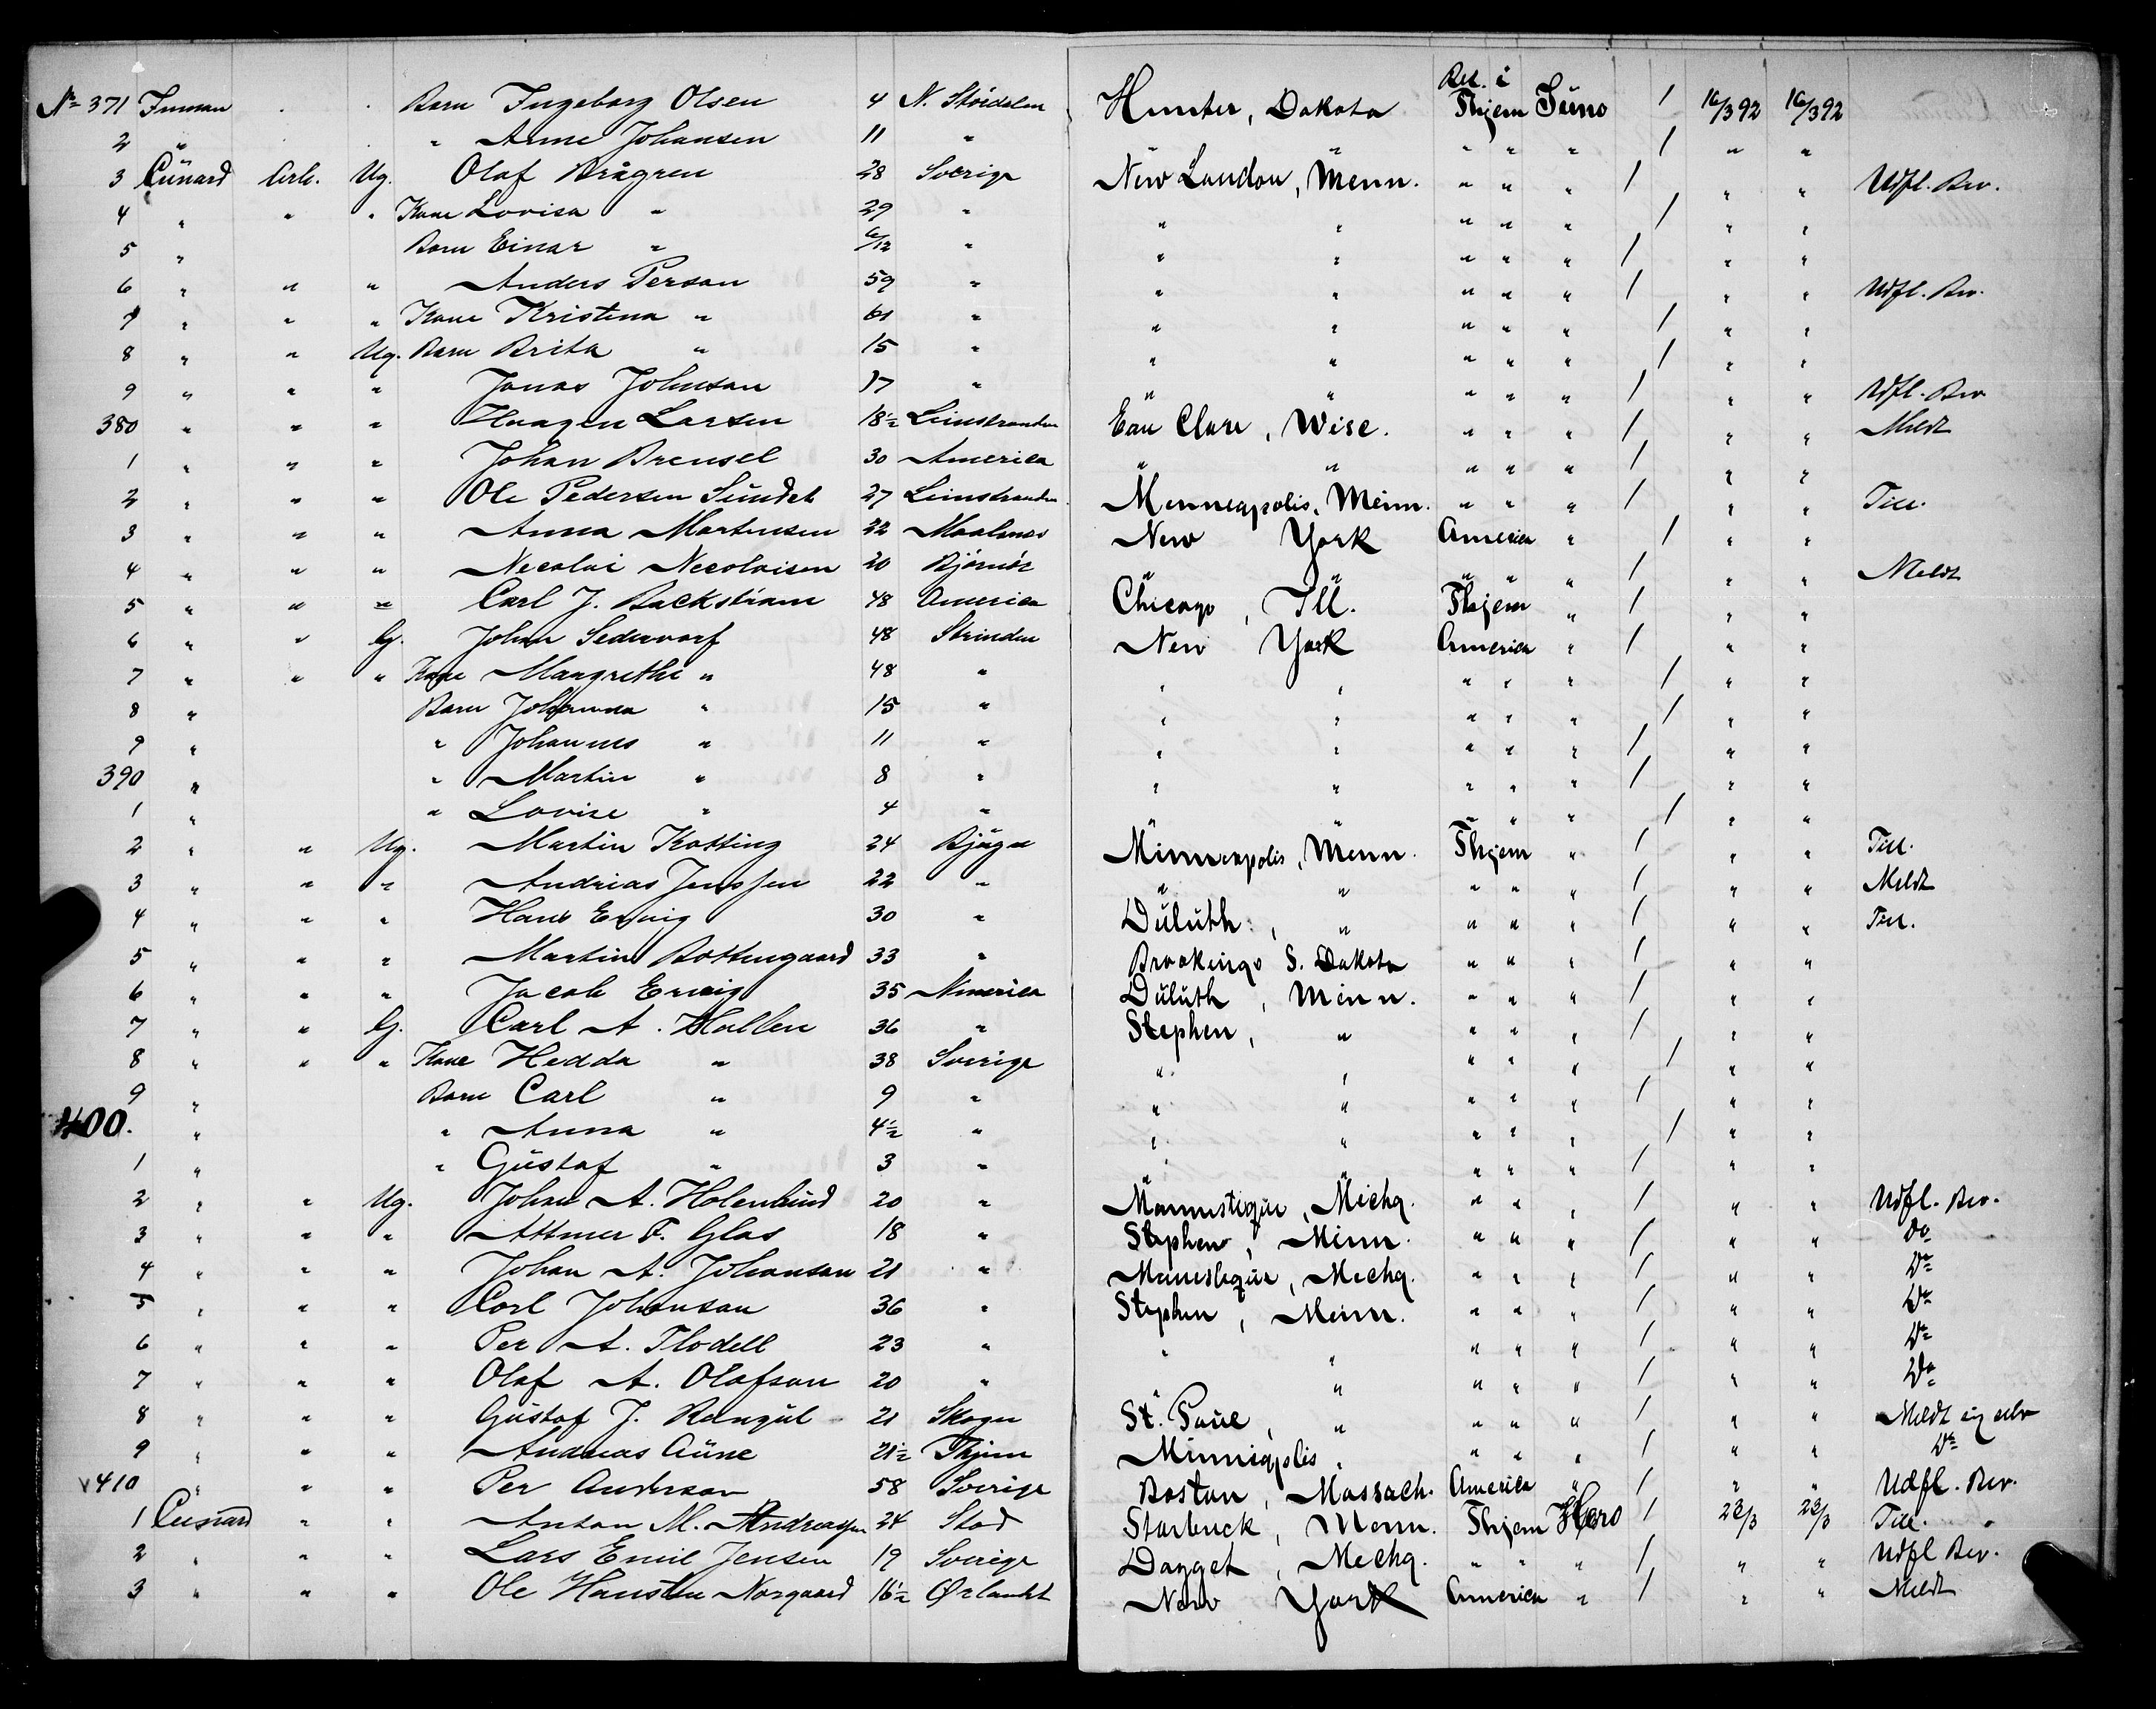 Bet. i
No 371 Inman Barn Ingeborg Olsen 4 N. Stördalen Hunter, Dakota Thjem Juno / 16/3 92 16/3 92
2 " " Arne Johansen 11 " " " " " " / " "
3 Cunard Arb. Ug. Olaf Brågren 28 Sverige New London, Menn. " " " / " " Udfl. Bev.
4 " " " Kone Lovisa " 29 " " " " " " / " "
5 " Barn Einar " 6/12 " " " " " " / " "
6 " " " Anders Person 59 " " " " " " / " " Udfl. Bev.
7 " " " Kone Kristina " 61 " " " " " " / " "
8 " " Ug. Barn Brita " 15 " " " " " " / " "
9 " " " Jonas Johnson 17 " " " " " " / " " Udfl. Bev
380 " " " Haagen Larsen 18½ Leinstranden Eau Clare, Wisc. " " " / " " Meldt
1 " " " Johan Brensel 30 America " " " " " / " "
2 " " " Ole Pedersen Sundet 27 Leinstranden Menneapolis, Meinn. " " " / " " Till.
3 " " " Anna Martinsen 22 Maalnes New York America " / " "
4 " " " Necolai Necolaisen 20 Björnör " " " " " / " " Meldt
5 " " " Carl J. Backstrøm 48 America Chicago, Ill. Thjem " / " "
6 " " G. Johan Sedervarf 48 Strinden New York America " / " "
7 " " " Kone Maagrethe " 48 " " " " " " / " "
8 " Barn Johanna " 15 " " " " " " / " "
9 " " Johannes " 11 " " " " " " / " "
390 " " Martin " 8 " " " " " " / " "
1 " " Lovise " 4 " " " " " " / " "
2 " " Ug. Martin Kotting 24 Bjugn Minneapolis, Menn. Thjem " / " " Till.
3 " " " Andrias Jenssen 22 " " " " " " / " " Meldt
4 " " " Hans Ervig 30 " Duluth, " " " " / " " Till.
5 " " " Martin Bottengaard 33 " Brookings S. Dakota " " " / " "
6 " " " Jacob Ervig 35 America Duluth, Minn. " " " / " "
7 " " G. Carl A. Hallen 36 " Stephen, " " " " / " "
8 " " " Kone Hedda " 38 Sverige " " " " " / " "
9 " Barn Carl " 9 " " " " " " / " "
400. " " Anna " 4½ " " " " " " / " "
1 " " Gustaf " 3 " " " " " " / " "
2 " " Ug. Johan A. Holenlund 20 " Mannestique, Michg. " " " / " " Udfl. Bev.
3 " " " Attmer F. Glas 18 " Stephen, Minn. " " " / " " Do
4 " " " Johan A. Johanson 21 " Manestique, Mechg. " " " / " " Do
5 " " " Carl Johanson 36 " Stephen, Meinn. " " " / " " Do
6 " " " Per A. Flodell 23 " " " " " " / " " Do
7 " " " Olaf A. Olafson 20 " " " " " " / " " Do
8 " " " Gustaf J. Rengul 21 Skogn St. Paul, " " " " / " " Meldt
9 " " " Andreas Aune 21½ Thjem Minniapolis, " " " / " " Do
410 " " " Per Anderson 58 Sverige Boston, Massach. America " / " " Udfl. Bev.
1 Cunard " " Anton M. Andreassen 24 Stod Starbuck, Menn. Thjem Hero / 23/3 23/3 Till.
2 " " " Lars Emil Jensen 19 Sverige Dagget, Mechg. " " " / " " Udfl Bev.
3 " " " Ole Hansten Norgaard 16½ Ørlandt New York America " / " " Meldt